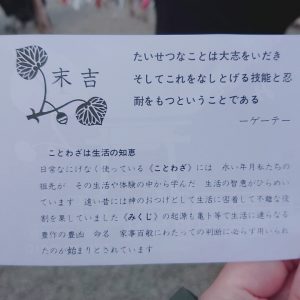 末吉
たいせつなことは大志をいだき
そしてこれをなしとげる技能と忍
耐をもつということである
―ゲーテ―
ことわざは生活の知恵
日常なにげなく使っている《ことわざ》には 永い年月私たちの
祖先が その生活や体験の中から学んだ 生活の智恵がひらめい
ています 遠い昔には神のおつげとして生活に密着して不離な役
割を果していました《みくじ》の起源も亀卜等で生活に連らなる
豊作の豊凶 命名 家事百般にわたっての判断に必らず用いられ
たのが始まりとされています